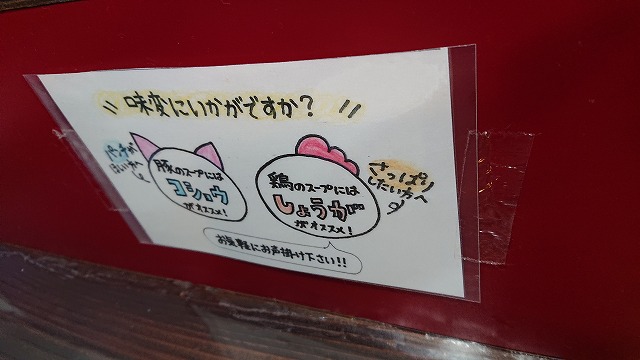 味変にいかがですか？
パンチが
ほしい方へ
豚のスープには
コショウ
がオススメ！
鶏のスープには
しょうが
がオススメ！
さっぱり
したい方へ
お気軽にお声掛け下さい！！